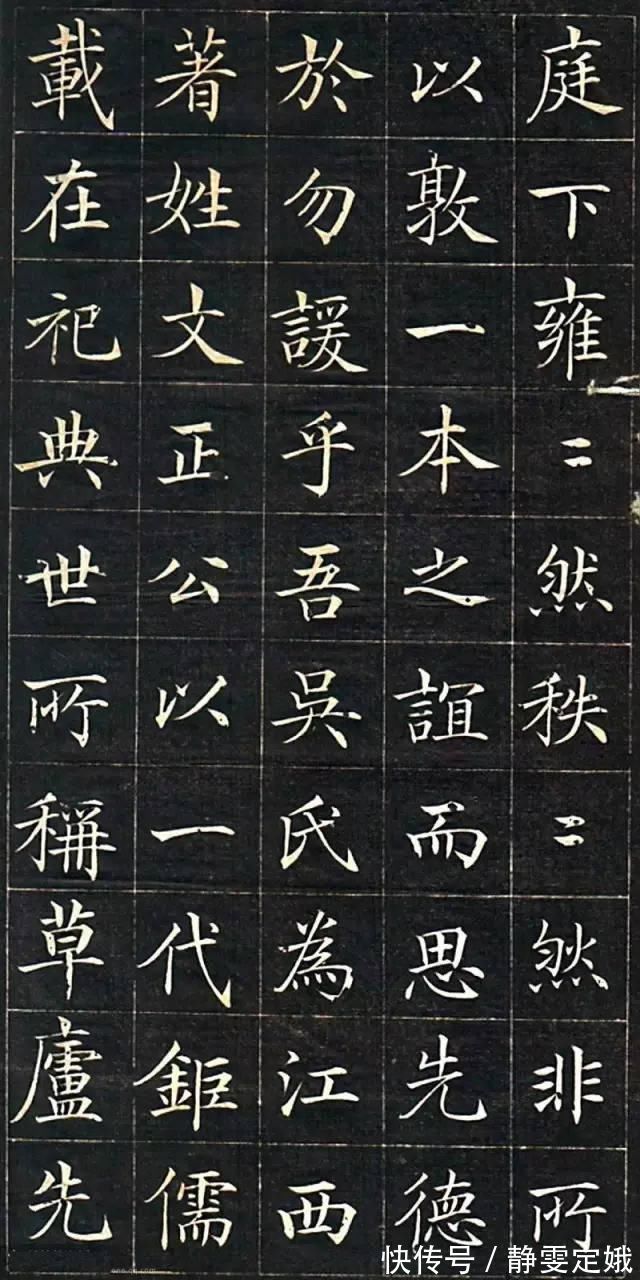 庭下雍〻然秩〻然非所
以敦一本之誼而思先德
於勿諼乎吾吳氏為江西
著姓文正公以一代鉅儒
載在祀典世所稱草廬先
快传号 / 静雯定娥